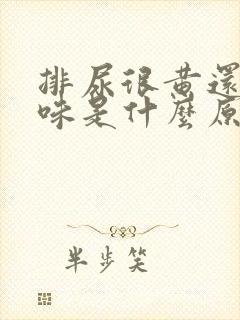 排尿很黄還
味是什麼原
半步笑